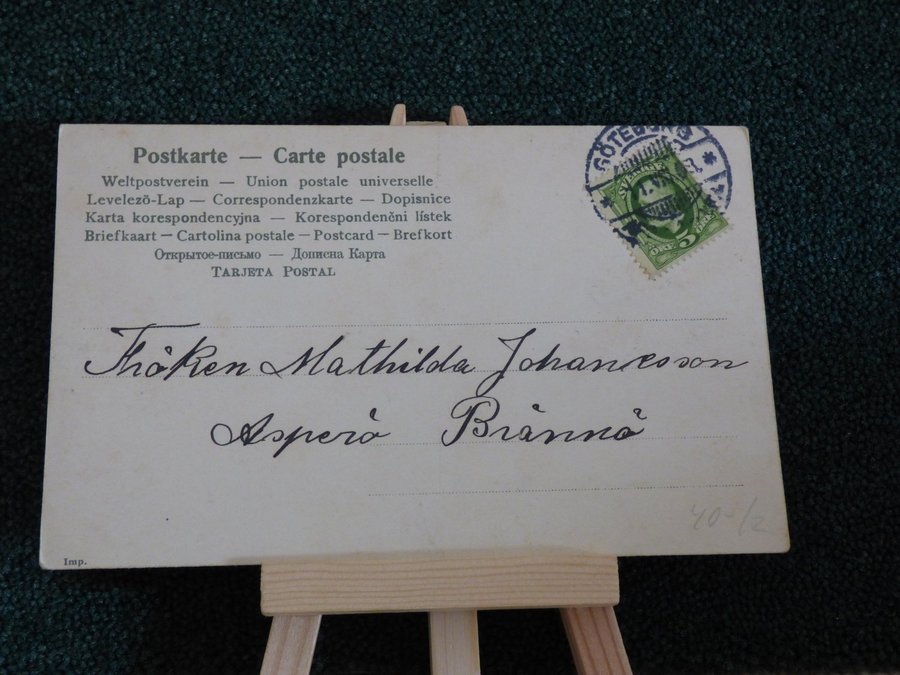 Postkarte — Carte postale
Weltpostverein — Union postale universelle
Levelező-Lap — Correspondenzkarte — Dopisnice
Karta korespondencyjna — Korespondenční lístek
Briefkaart — Cartolina postale — Postcard — Brefkort
Открытое-письмо — Дописна Карта
TARJETA POSTAL
GÖTEBORG
SVERIGE
5
Fröken Mathilda Johannesson
Asperö Brännö
40-/2
Imp.